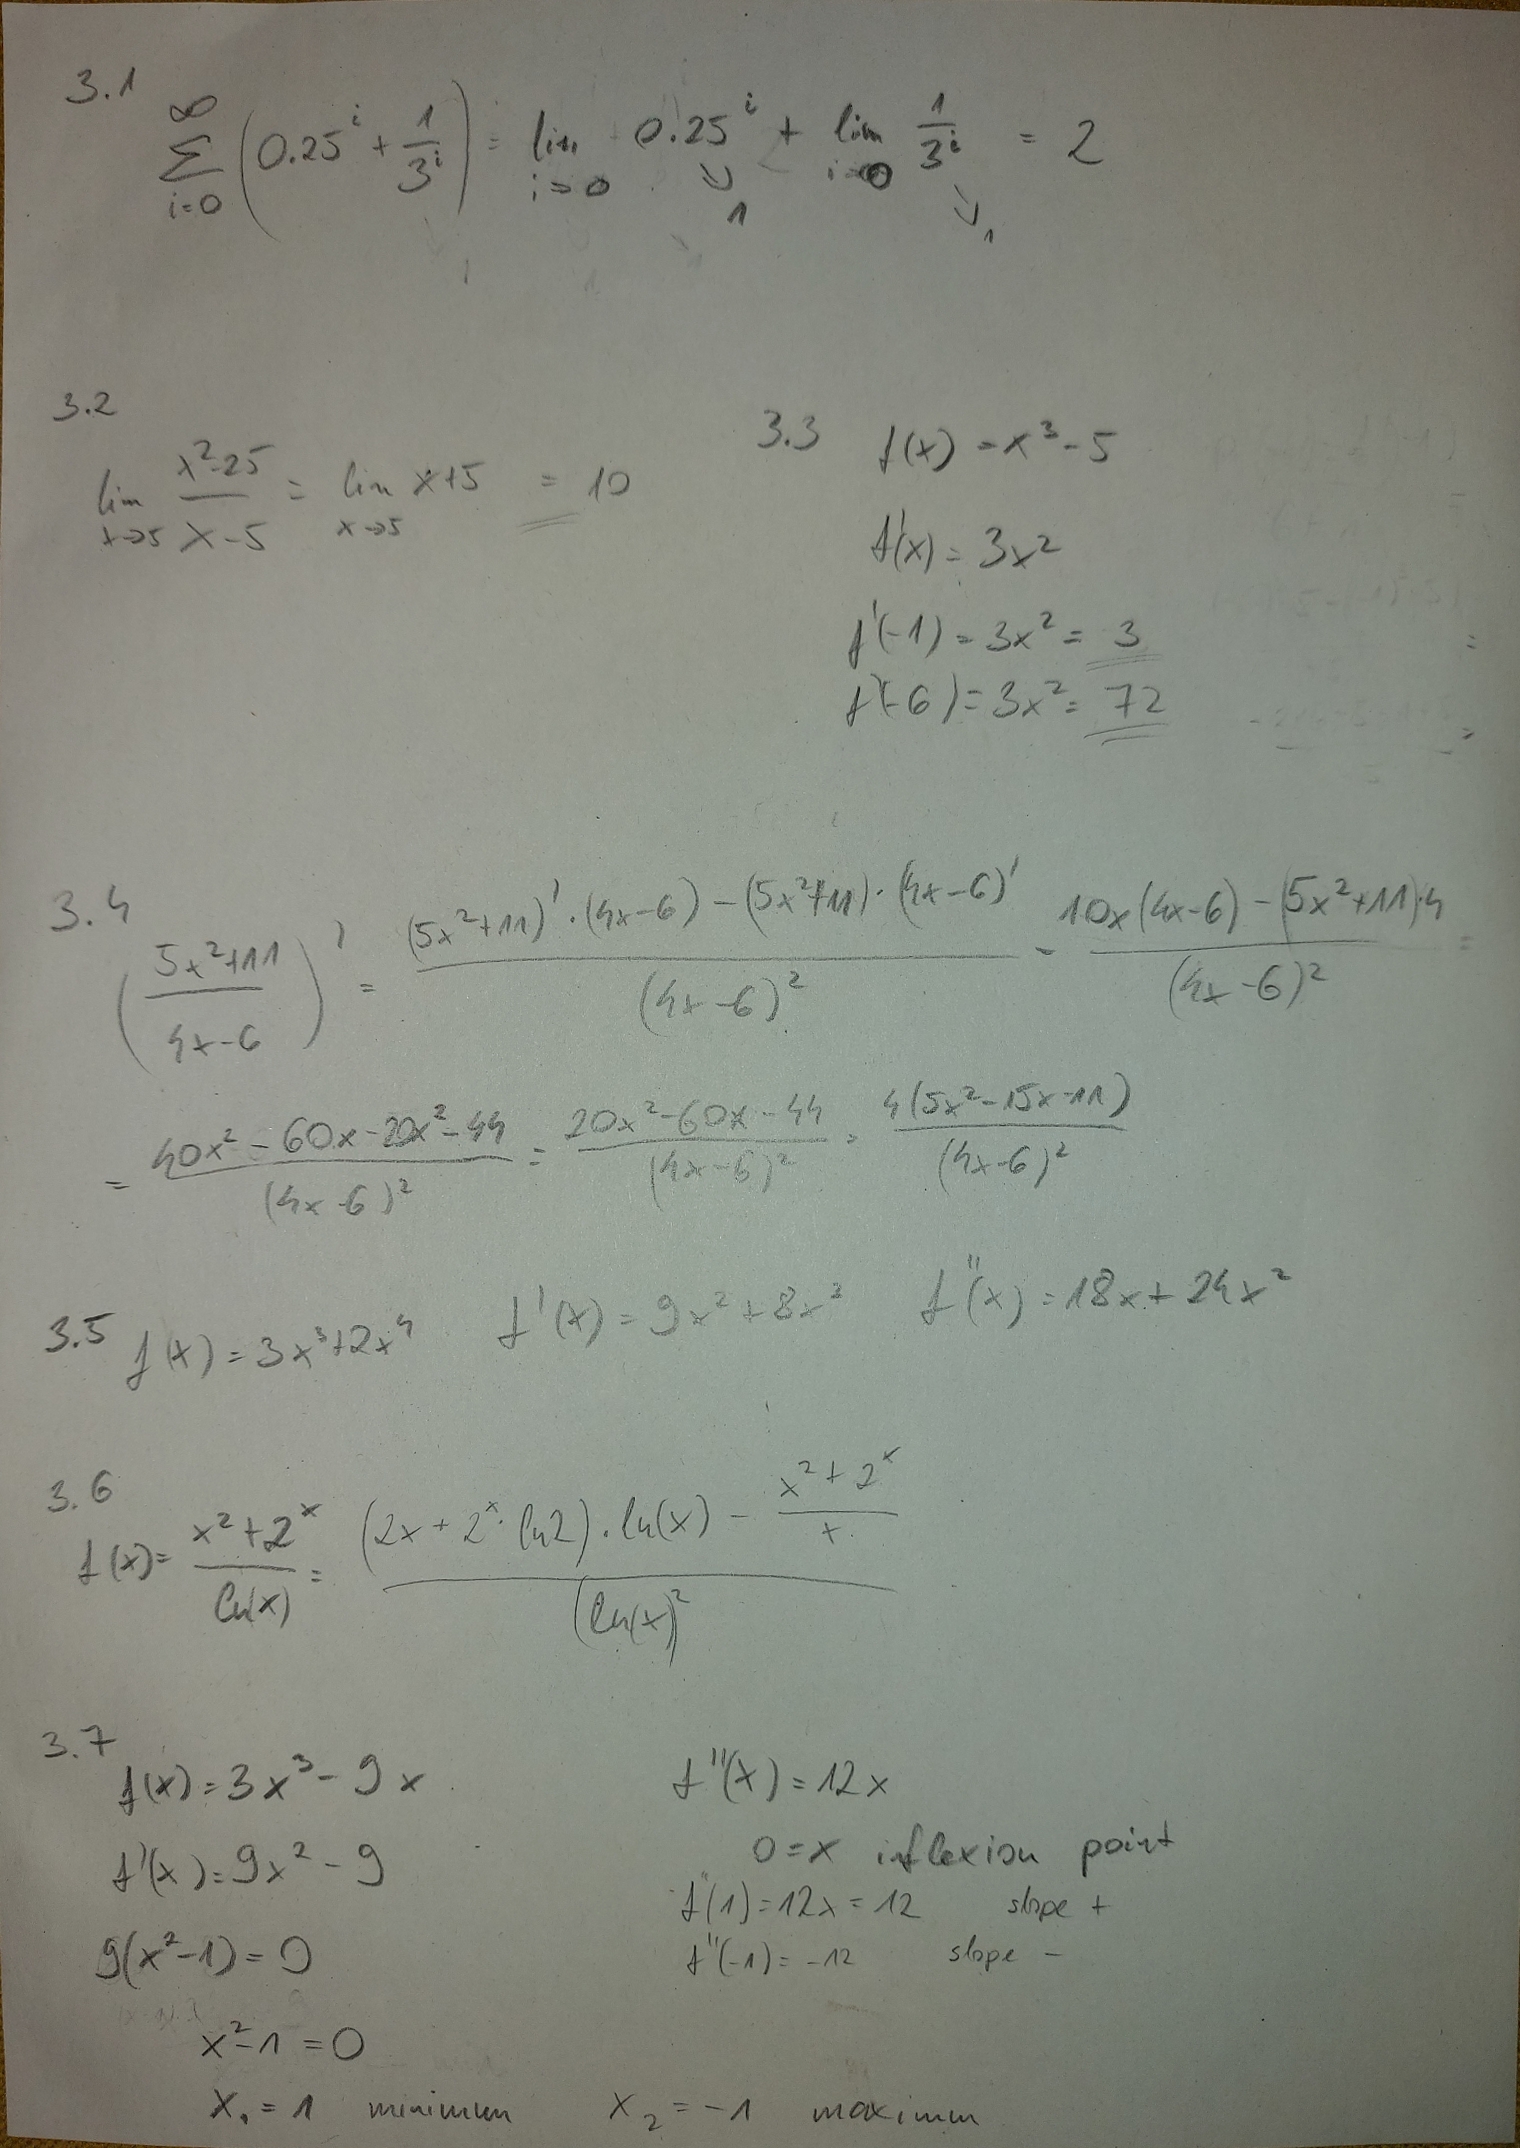 3.1
∞
∑ (0.25^i + 1/3^i) = lim 0.25^i + lim 1/3^i = 2
i=0 i→0 ↘1 i→0 ↘1
3.2
lim x→5 (x²-25)/(x-5) = lim x→5 x+5 = 10
3.3 f(x) = x³-5
f'(x) = 3x²
f'(-1) = 3x² = 3
f'(-6) = 3x² = 72
3.4
((5x²+11)/(4x-6))' = ((5x²+11)'·(4x-6) - (5x²+11)·(4x-6)')/(4x-6)² = (10x(4x-6) - (5x²+11)·4)/(4x-6)² =
= (40x² - 60x - 20x² - 44)/(4x-6)² = (20x² - 60x - 44)/(4x-6)² = 4(5x² - 15x - 11)/(4x-6)²
3.5 f(x) = 3x³+2x⁴ f'(x) = 9x² + 8x³ f''(x) = 18x + 24x²
3.6
f(x) = (x²+2^x)/ln(x) = ((2x + 2^x · ln2) · ln(x) - (x²+2^x)/x)/(ln(x)²
3.7
f(x) = 3x³ - 9x
f'(x) = 9x² - 9
9(x²-1) = 0
x²-1 = 0
x₁ = 1 minimum x₂ = -1 maximum
f''(x) = 12x
0 = x inflexion point
f''(1) = 12x = 12 slope +
f''(-1) = -12 slope -